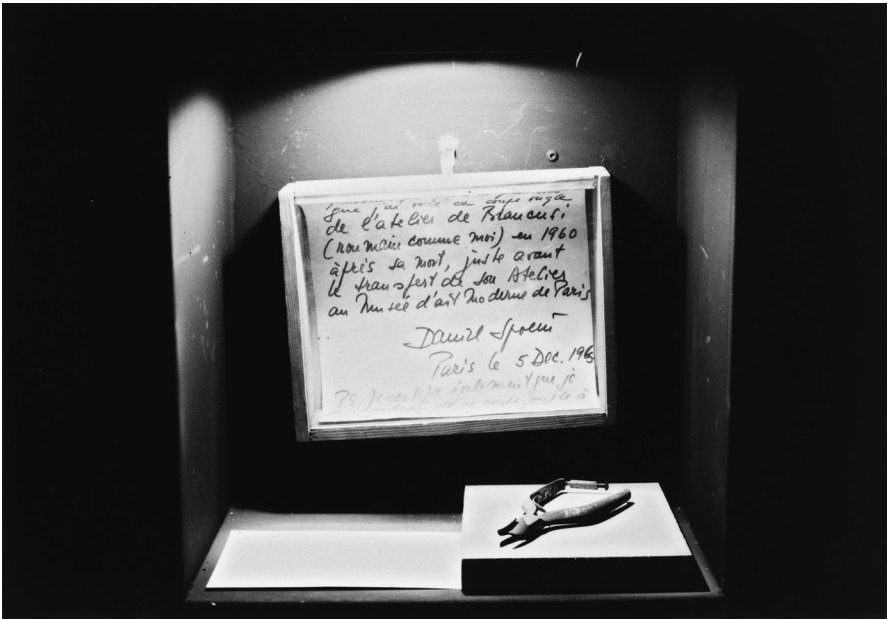 que j'ai volé ce coupe ongle
de l'atelier de Brancusi
(roumain comme moi) en 1960
après sa mort, juste avant
le transfert de son Atelier
au Musée d'art Moderne de Paris
Daniel Spoerri
Paris le 5 Dec. 196
PS. Je certifie également que je